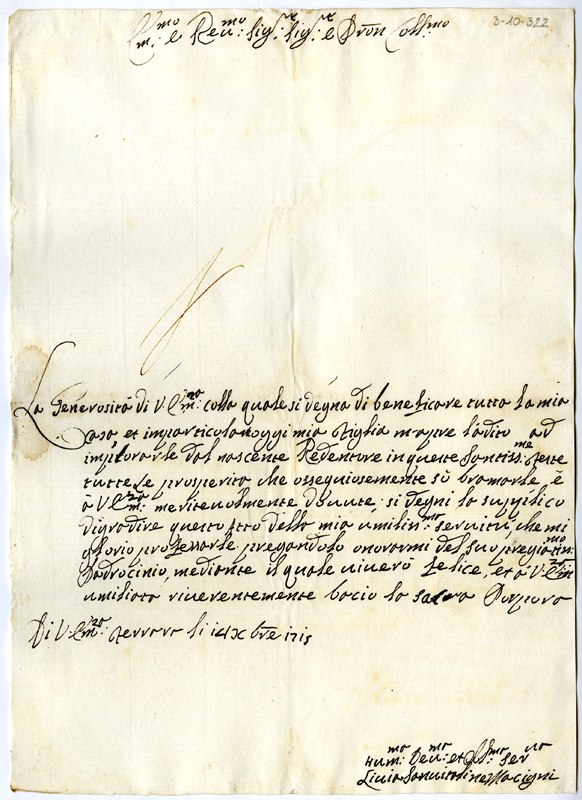 3-10-322
Em:mo e Reu:mo sig:re sig:re e Pron Coll:mo
La Generosità di V. Em:za colla quale si degna di beneficare tutta la mia
Casa et in particola oggi mia figlia m'apre l'adito ad
implorarle dal nascente Redentore in queste Santiss:me feste
tutte le prosperità che ossequiosamente sò bramarle, e
à V. Em:za meriteuolmente douute; si degni la supplico
di gradire questo atto della mia umiliss:ma seruitù che mi
glorio professarle pregandola onorarmi del suo pregiatiss:mo
Padrocinio, mediante il quale viuerò felice, et à V. Em:za
umiliata riuerentemente bacio la sacra Porpora
Di V. Em:za Ferrara li 14 Xbre 1715
Hum:ma Deu:ma et Obl:ma ser:ua
Liuia